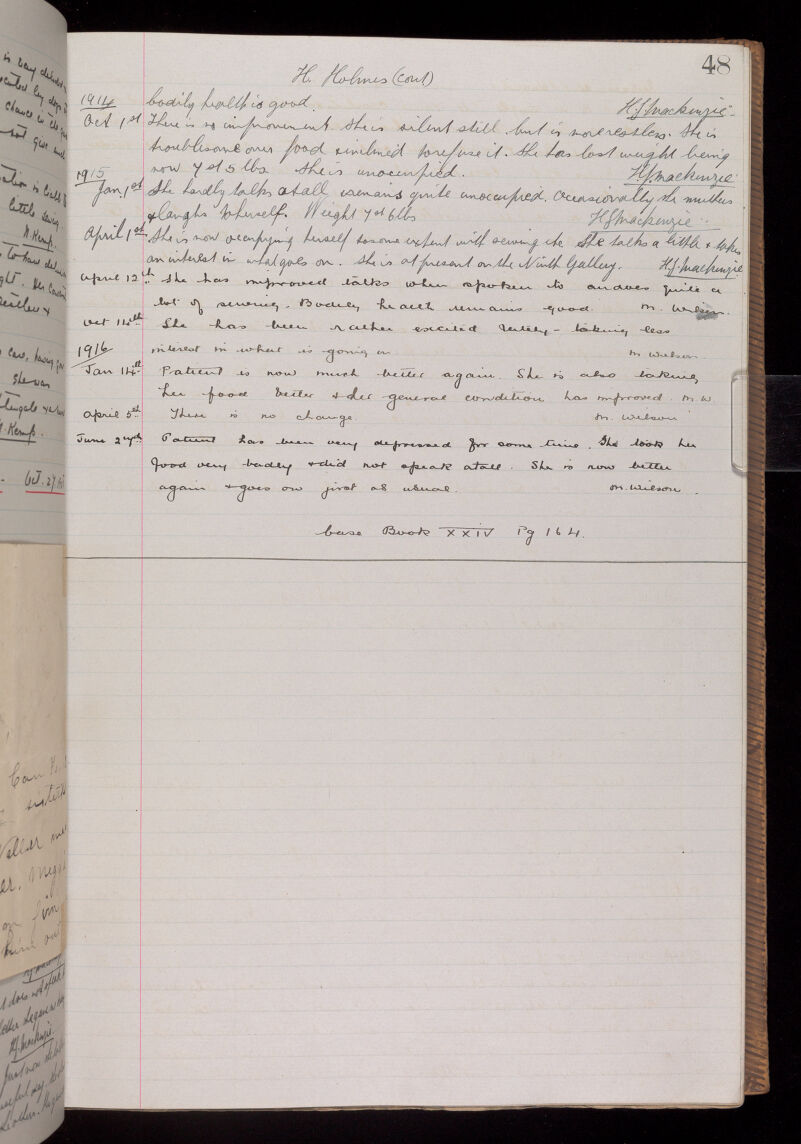 48
H. Holmes (cont)
1914 bodily health is good. H.J. Mackenzie
Oct 1st There is no improvement. She is silent still but is more restless. She is
troublesome over food & inclined to refuse it. She has lost weight being
now 7 st 5 lbs She is unoccupied. H.J. Mackenzie
1915
Jan 1st She hardly talks at all & remains quite unoccupied. Occasionally she mutters
& laughs to herself. Weight 7 st 6 lbs H.J. Mackenzie
April 1st She is now occupying herself to some extent with sewing etc. She talks a little & takes
an interest in what goes on. She is at present on the Ninth Gallery. H.J. Mackenzie
April 12th She has improved talks when spoken to and does quite a
lot of sewing. Bodily health remains good. M. Wilson.
Oct 14th She has been rather excited lately - taking less
1916 interest in what is going on M Wilson
Jan 14th Patient is now much better again. She is also taking
her food better & her general condition has improved. M.W.
April 5th There is no change. M. Wilson
June 24th Patient has been very depressed for some time. She took her
food very badly & did not speak at all. She is now better
again & goes on just as usual. M. Wilson.
Case Book XXIV Pg 164.
is very
chance in the
not give
little sewing
H. Kemp.
She was
H. Kemp.
Oct. 27
sisters
H.J. Mackenzie